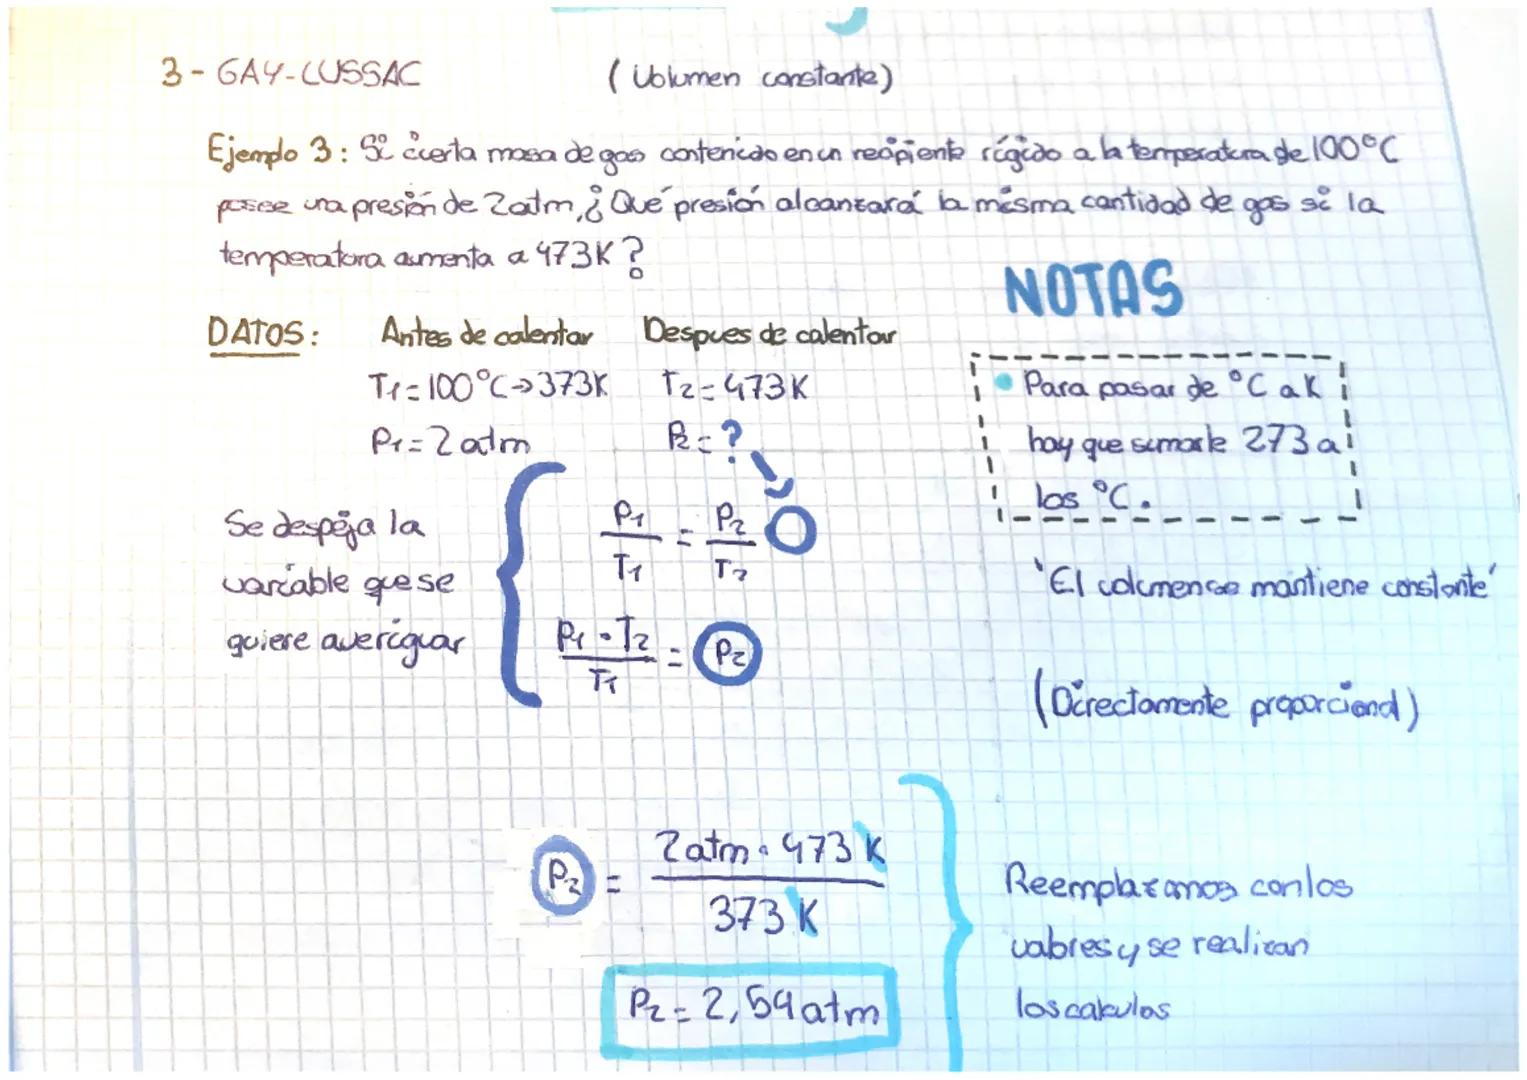 3 - GAY-LUSSAC (Volumen constante)
Ejemplo 3: Si cierta masa de gas contenido en un recipiente rígido a la temperatura de 100°C
posee una presión de 2atm, ¿Qué presión alcanzará la misma cantidad de gas si la
temperatura aumenta a 473K?
NOTAS
DATOS: Antes de calentar Despues de calentar
T1 = 100°C → 373K T2 = 473K
P1 = 2 atm P2 = ?
• Para pasar de °C a K
hay que sumarle 273 a
los °C.
Se despeja la
variable que se
quiere averiguar
P1 / T1 = P2 / T2
P1 · T2 / T1 = P2
'El volumen se mantiene constante'
(Directamente proporcional)
P2 = 2 atm · 473 K / 373 K
P2 = 2,54 atm
Reemplazamos con los
valores y se realizan
los calculos